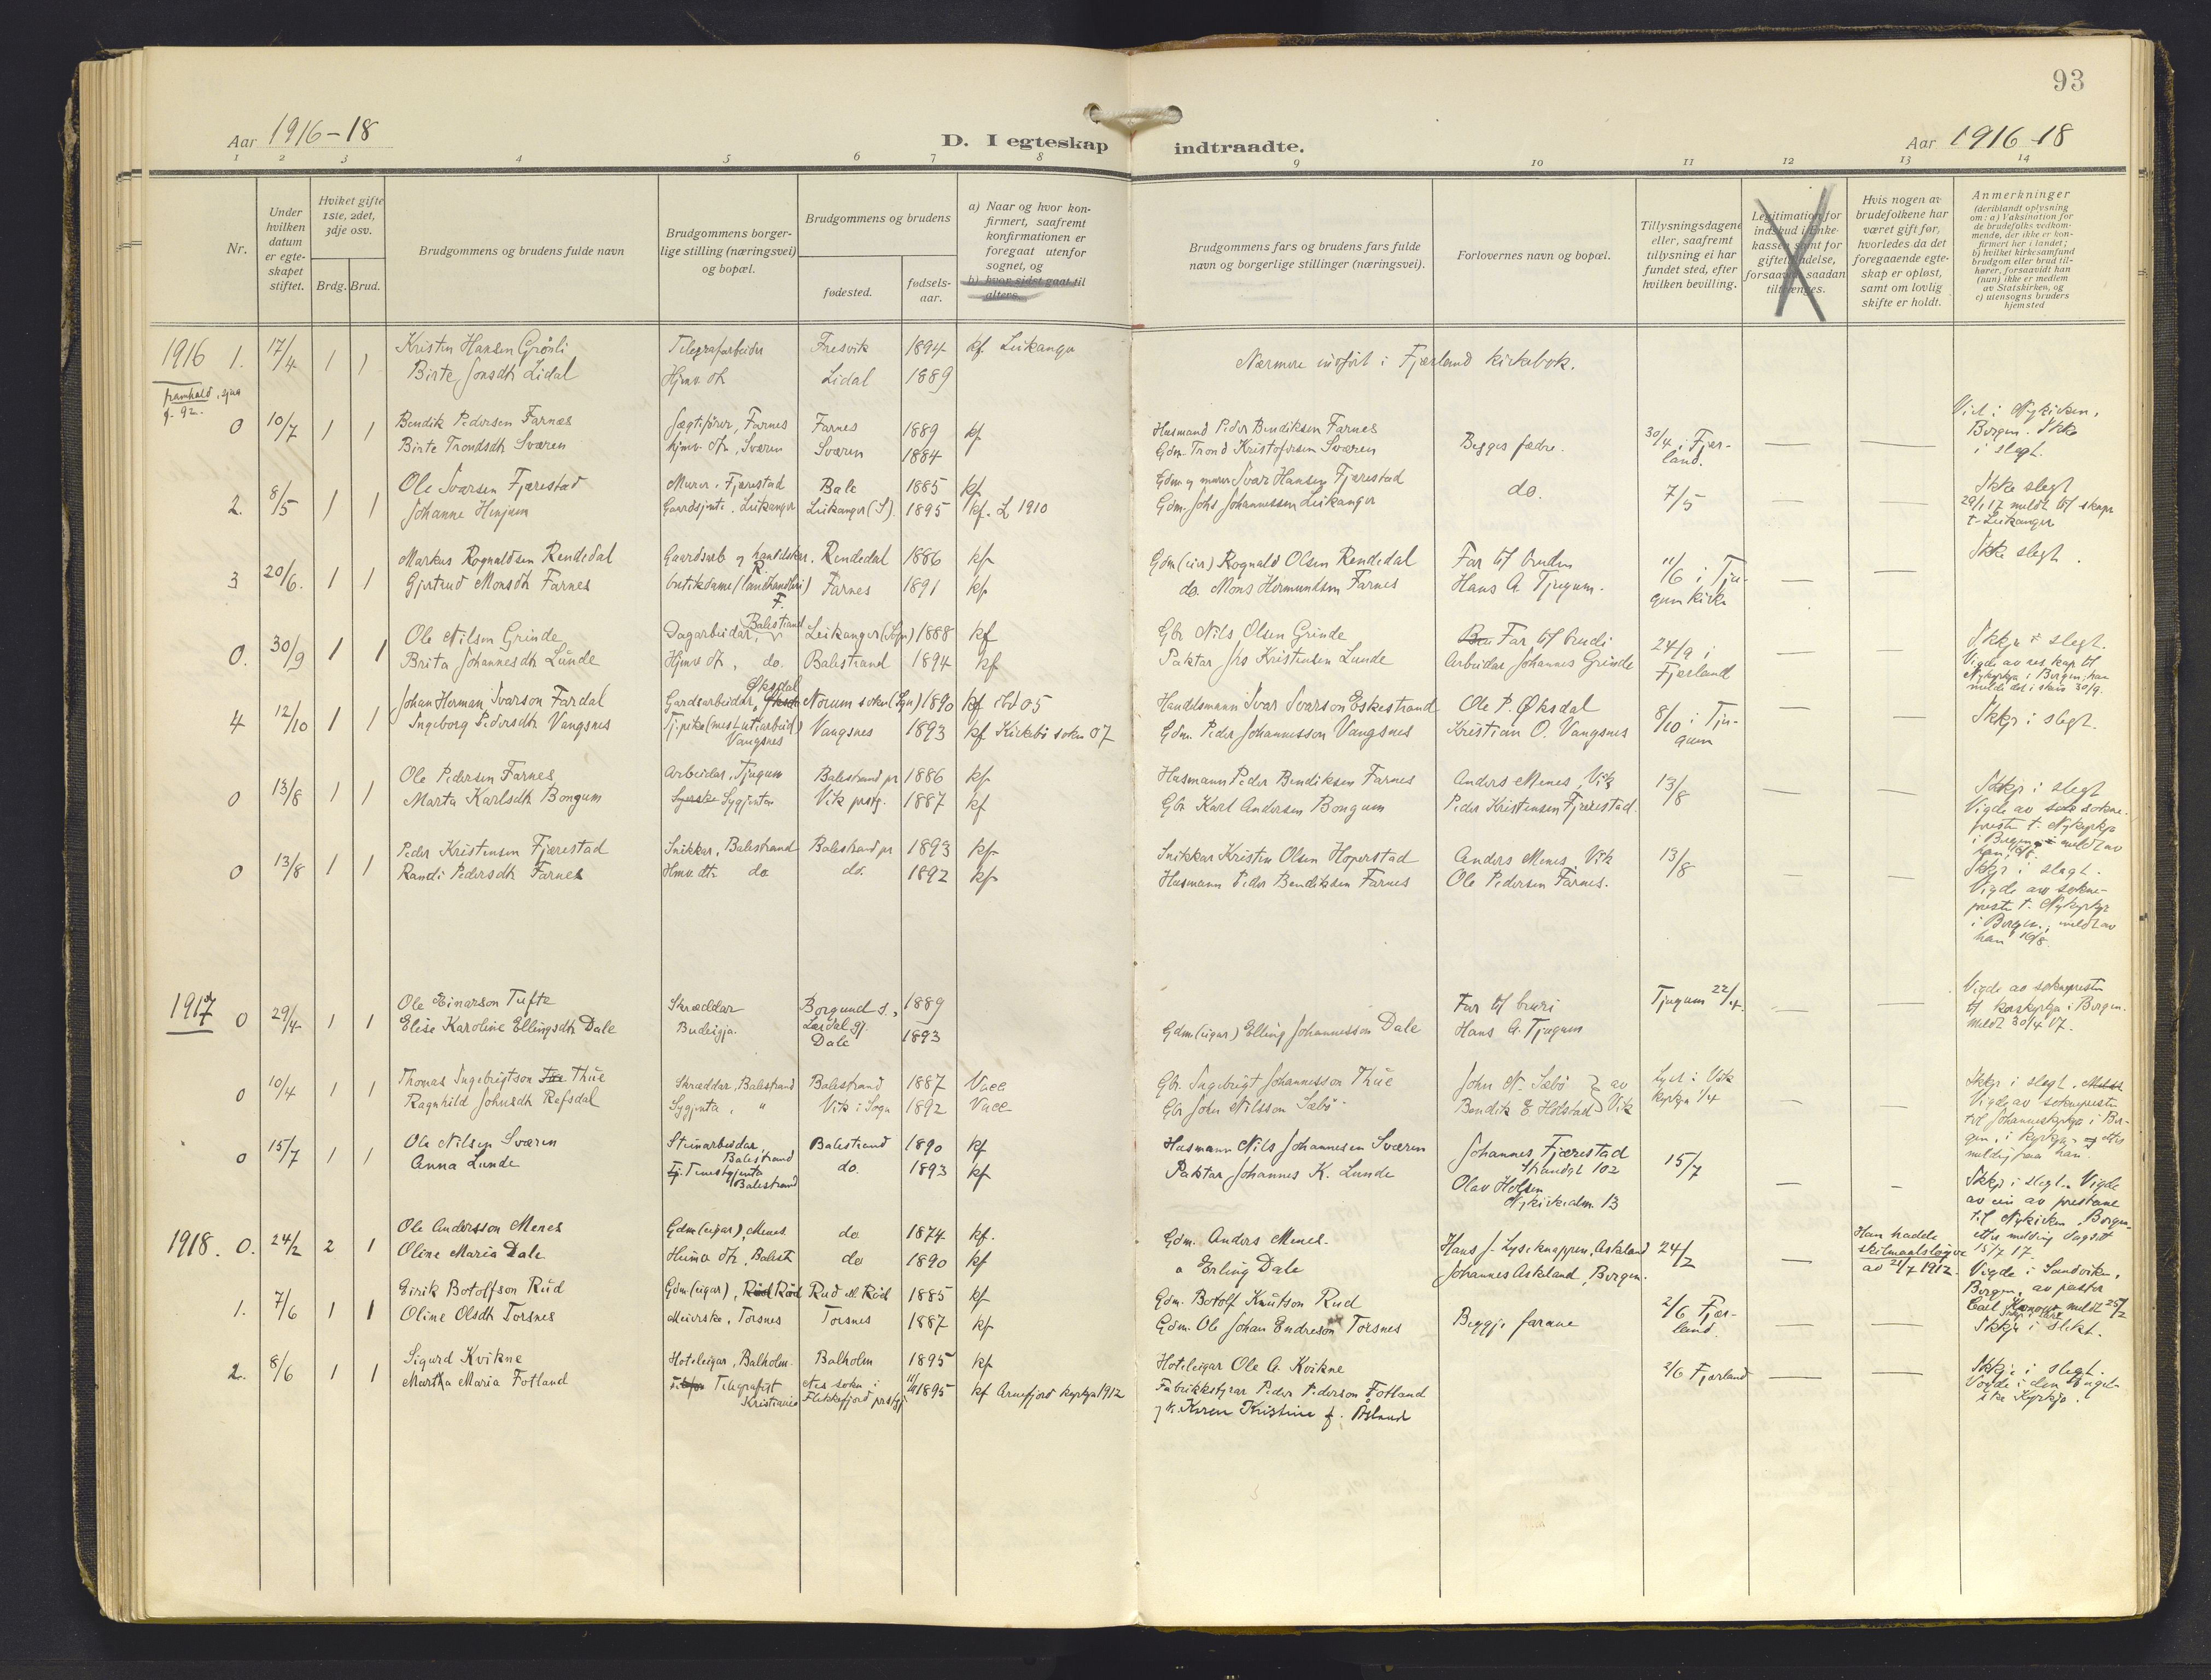 93
Aar 1916-18
D. I egteskap indtraadte.
Aar 1916-18
1 2 3 4 5 6 7 8 9 10 11 12 13 14
Nr.
Under hvilken datum er egte-skapet stiftet.
Hviket gifte 1ste, 2det, 3dje osv.
Brdg. Brud.
Brudgommens og brudens fulde navn
Brudgommens borger-lige stilling (næringsvei) og bopæl.
Brudgommens og brudens
fødested.
fødsels-aar.
a) Naar og hvor kon-firmert, saafremt konfirmationen er foregaat utenfor sognet, og
b) hvor sidst gaat til alters.
Brudgommens fars og brudens fars fulde navn og borgerlige stillinger (næringsvei).
Forlovernes navn og bopæl.
Tillysningsdagene eller, saafremt tillysning ei har fundet sted, efter hvilken bevilling.
Legitimation for indskud i Enke-kassen samt for giftetilladelse, forsaavidt saadan tiltrænges.
Hvis nogen av brudefolkene har været gift før, hvorledes da det foregaaende egte-skap er opløst, samt om lovlig skifte er holdt.
Anmerkninger (deriblandt oplysning om: a) Vaksination for de brudefolks vedkom-mende, der ikke er kon-firmert her i landet; b) hvilket kirkesamfund brudgom eller brud til-hører, forsaavidt han (hun) ikke er medlem av Statskirken, og c) utensogns bruders hjemsted
1916 1. 17/4 1 1 Kristen Hansen Grönli Telegrafarbeider Fresvik 1894 kf. Leikanger Nærmere indført i Fjærland kirkebok.
Birte Jonsdtr Lidal Hjmv. dtr Lidal 1889
framhald, sjaa
0 10/7 1 1 Bendik Pedersen Farnes Jægtfører, Farnes Farnes 1889 kf Husmand Peder Bendiksen Farnes Begges fædre. 30/4 i Fjær-land. Viet i Nykirken, Bergen. Ikke i slegt.
Birte Trondsdtr Sværen hjmv. dtr, Sværen Sværen 1884 Gdm. Trond Kristofersen Sværen
2. 8/5 1 1 Ole Ivarsen Fjærestad Murer, Fjærestad Bale 1885 kf Gdm og murer Ivar Hansen Fjærestad do. 7/5 Ikke slegt
Johanne Henjum Gaardsjente, Leikanger Leikanger (S). 1895 kf. L 1910 Gdm. Johs Johannessen Leikanger 29/1 17 meldt til skapr t. Leikanger
3 20/6. 1 1 Markus Rognaldsen Rendedal Gaardsarb og handelskar. R. Rendedal 1886 kf Gdm (eier) Rognald Olsen Rendedal Far til bruden 11/6 i Tju-gum kirke Ikke slegt.
Gjertrud Monsdtr Farnes butikdame (landhandleri) F. Farnes 1891 kf do. Mons Hermundsen Farnes Hans A. Tjugum.
0. 30/9 1 1 Ole Nilsen Grinde Dagarbeidar, Balestrand Leikanger (Sogn) 1888 kf Gbr Nils Olsen Grinde Far til brudi 24/9 i Fjærland Ikkje i slegt.
Brita Johannesdtr Lunde Hjmv dtr, do. Balestrand 1894 kf Paktar Jhs Kristensen Lunde Arbeidar Johannes Grinde Vigde av res. kap. til Nykyrkja i Bergen, han melde det i skriv 30/9.
4 12/10 1 1 Johan Herman Ivarson Fardal Gardsarbeidar, Øksdal Norum sokn (Sogn) 1890 kf 05 Handelsmann Ivar Ivarson Eskestrand Ole P. Øksdal 8/10 i Tju-gum Ikkje i slegt.
Ingeborg Pedersdtr Vangsnes Tj.pike (mest utearbeid) Vangsnes Vangsnes 1893 kf Kirkebö sokn 07 Gdm. Peder Johannesson Vangsnes Kristian O. Vangsnes
0 13/8 1 1 Ole Pedersen Farnes Arbeidar, Tjugum Balestrand pr 1886 kf Husmann Peder Bendiksen Farnes Anders Menes, Vik 13/8 Ikkje i slegt
Marta Karlsdtr Bongum Syerske Sygjenta Vik prstg. 1887 kf Gbr Karl Andersen Bongum Peder Kristensen Fjærestad. Vigde av sokne-presten t. Nykyrkja i Bergen meldt av han 16/8.
0 13/8 1 1 Peder Kristensen Fjærestad Snikkar, Balestrand Balestrand pr 1893 kf Snikkar Kristen Olsen Hoperstad Anders Menes, Vik 13/8 Ikkje i slegt.
Randi Pedersdtr Farnes Hmv dtr. do do. 1892 kf Husmann Peder Bendiksen Farnes Ole Pedersen Farnes. Vigde av sokne-presten t. Nykyrkja i Bergen., meldt av han 16/8.
1917 0 29/4 1 1 Ole Einarson Tufte Skræddar Borgund s., Lærdal gj. 1889 Far til brudi Tjugum 22/4. Vigde av soknepresten til korskyrkja i Bergen. meldt 30/4 17.
Elise Karoline Ellingsdtr Dale Budeigja. Dale 1893 Gdm (eigar) Elling Johannesson Dale Hans A. Tjugum
0 10/4 1 1 Thomas Ingebrigtson Thue Skræddar, Balestrand Balestrand 1887 Vacc Gbr. Ingebrigt Johannesson Thue John N. Sæbö } av Vik Lyst i Vik kyrkja 1/4 Ikkje i slegt.
Ragnhild Johnsdtr Refsdal Sygjenta, " Vik i Sogn 1892 Vacc Gbr John Nilsson Sæbö Bendik E Holstad Vigde av soknepresten til Johanneskyrkja i Ber-gen, i kyrkja, etter melding fraa han.
0 15/7 1 1 Ole Nilsen Sværen Steinarbeidar Balestrand Balestrand 1890 kf Husmann Nils Johannesen Sværen Johannes Fjærestad Strandgt 102 15/7 Ikkje i slegt. Vigde av ein av prestane til Nykirken, Bergen etter melding dagsett 15/7 17.
Anna Lunde Tenestgjenta Balestrand do. 1893 kf Paktar Johannes K. Lunde Olav Holsen Nykirkealm. 13
1918. 0. 24/2 2 1 Ole Andersson Menes Gdm (eigar), Menes do. 1874 kf. Gdm. Anders Menes. Hans J. Lyseknappen, Askland 24/2 Han hadde skilmaalsløyve av 21/7 1912. Vigde i Sandviken, Bergen, av pastor Carl meldt 25/2
Oline Maria Dale Heima dtr, Balest. do 1890 kf Erling Dale Johannes Askland, Bergen.
1. 7/6 1 1 Eirik Botolfson Rud Gdm (eigar), Röd Rud el. Röd 1885 kf Gdm. Botolf Knutson Rud Beggje farane 2/6 Fjær-land. Ikkje i slekt.
Oline Olsdtr Torsnes Meierske, Torsnes Torsnes 1887 kf Gdm. Ole Johan Endreson Torsnes
2. 8/6 1 1 Sigurd Kvikne Hoteleigar, Balholm. Balholm 1895 kf Hoteleigar Ole A. Kvikne 2/6 Fjærland Ikkje i slegt.
Martha Maria Fotland Telegrafist Kristiania Nes sokn i Flekkefjord prstgj. 1895 kf Arnefjord kyrkja 1912 Fabrikkstyrar Peder Pederson Fotland Vigde i den Engel-ske Kyrkje.
Karen Kristine f. Åsland